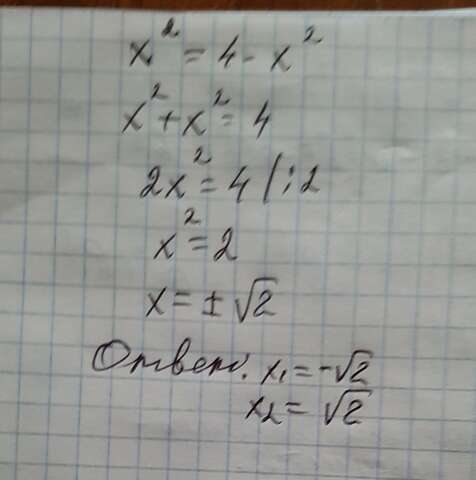 x² = 4 - x²
x² + x² = 4
2x² = 4 /:2
x² = 2
x = ± √2
Ответ. x₁ = -√2
x₂ = √2